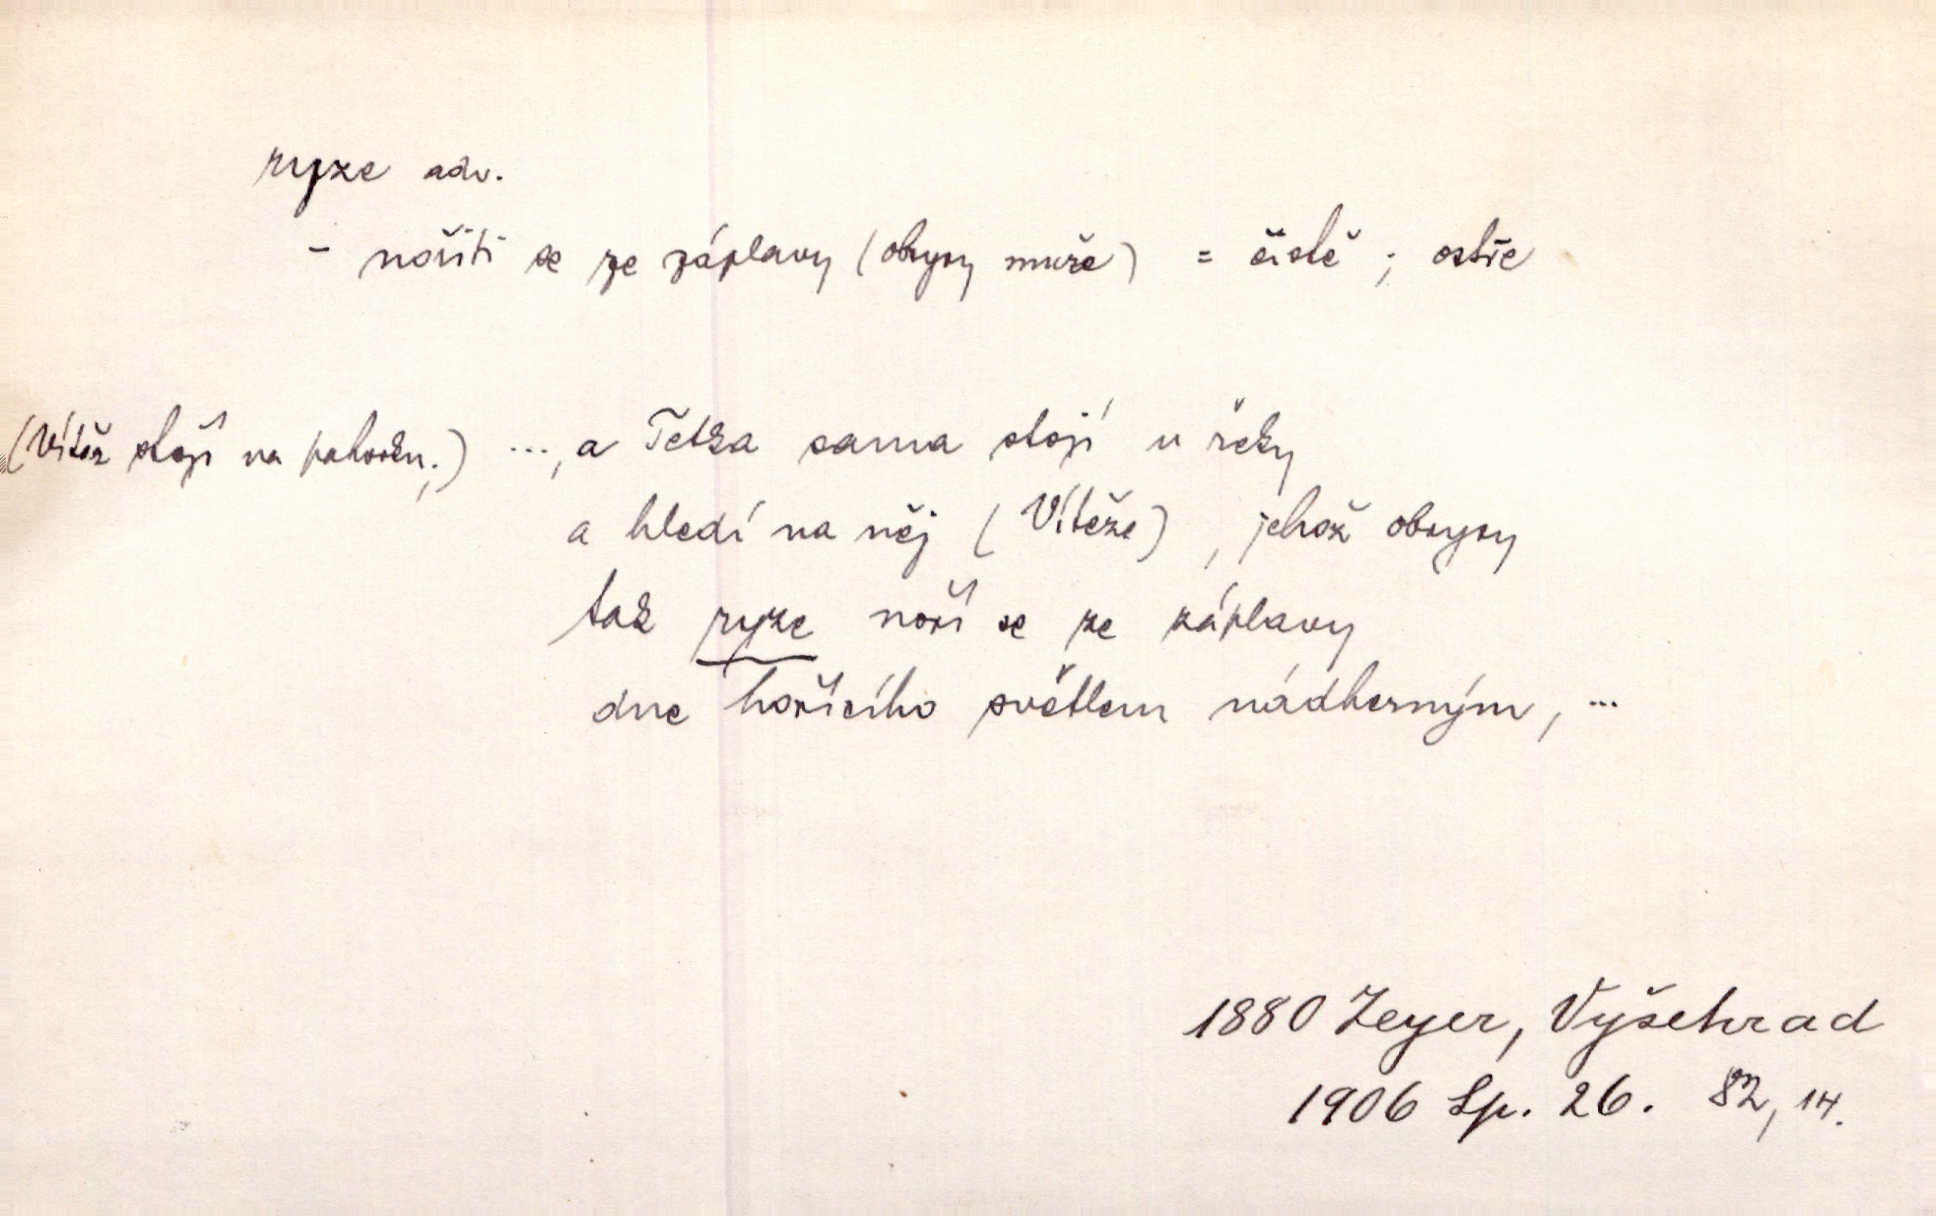 ryze adv.
– nořiti se ze záplavy (obrysy muže) = čistě ; ostře
(Vítěz stojí na pahorku;) ..., a Tetka sama stojí u řeky
a hledí na něj (Vítěze), jehož obrysy
tak ryze noří se ze záplavy
dne hořícího světlem nádherným, ...
1880 Zeyer, Vyšehrad
1906 Sp. 26. 82, 14.